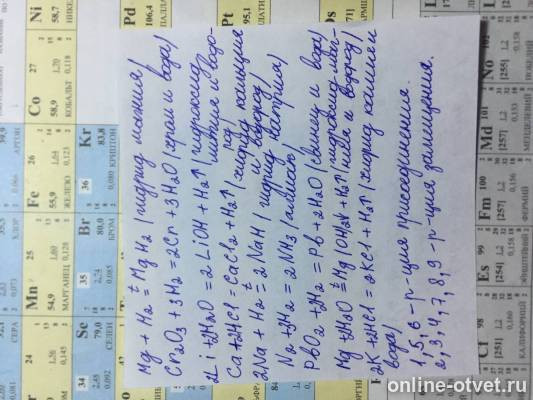 Mg + H2 =t MgH2 (гидрид магния)
Cr2O3 + 3H2 = 2Cr + 3H2O (хром и вода)
2Li + 2H2O = 2LiOH + H2↑ (гидроксид лития и водород)
Ca + 2HCl = CaCl2 + H2↑ (хлорид кальция и водород)
2Na + H2 =t 2NaH (гидрид натрия)
N2 + 3H2 = 2NH3 (аммиак)
PbO2 + 2H2 = Pb + 2H2O (свинец и вода)
Mg + 2H2O =t Mg(OH)2↓ + H2↑ (гидроксид магния и водород)
2K + 2HCl = 2KCl + H2↑ (хлорид калия и
вода)
1, 5, 6 - р-ция присоединения.
2, 3, 4, 7, 8, 9 - р-ция замещения.
Ni
58,7
НИКЕ
Pd
106,4
Pt
195,1
27
Co
58,9
КОБАЛЬТ
0,118
АРГОН
26
Fe
55,9
ЖЕЛЕЗО
0,123
36
Kr
83,8
КРИПТОН
25
Mn
54,9
МАРГАНЕЦ
35
Br
80,0
БРОМ
24
34
Se
79,0
СЕРА
No
[255]
101
Md
[257]
100
Fm
[257]
ФЕРМИЙ
99
Es
[254]
98
Cf
КАЛИФОРНИЙ
online-otvet.ru